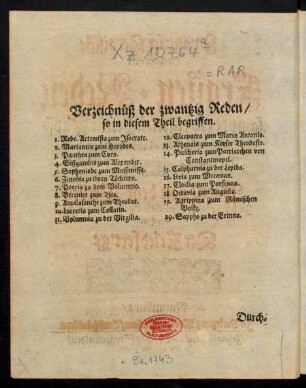 Xz 10764ª
= RAR
Verzeichnüß der zwantzig Reden/
so in diesem Theil begriffen.
1. Rede. Artemisia zum Isocrate.
2. Mariamne zum Herodes.
3. Panthea zum Cyro.
4. Sisigambis zum Alexander.
5. Sophonisbe zum Massinissa.
6. Zenobia zu ihren Töchtern.
7. Porcia zu dem Volumnio.
8. Berenice zum Tito.
9. Amalasunthe zum Theodat.
10. Lucretia zum Collatin.
11. Volumnia zu der Virgilia.
12. Cleopatra zum Marco Antonio.
13. Athenais zum Keyser Theodosio.
14. Pulcheria zum Patriarchen von
Constantinopel.
15. Calphurnia zu der Lepida.
16. Livia zum Mecenas.
17. Cloelia zum Porsenna.
18. Octavia zum Augusto.
19. Agrippina zum Römischen
Volke.
20. Sappho zu der Erinna.
Durch-
94.1743